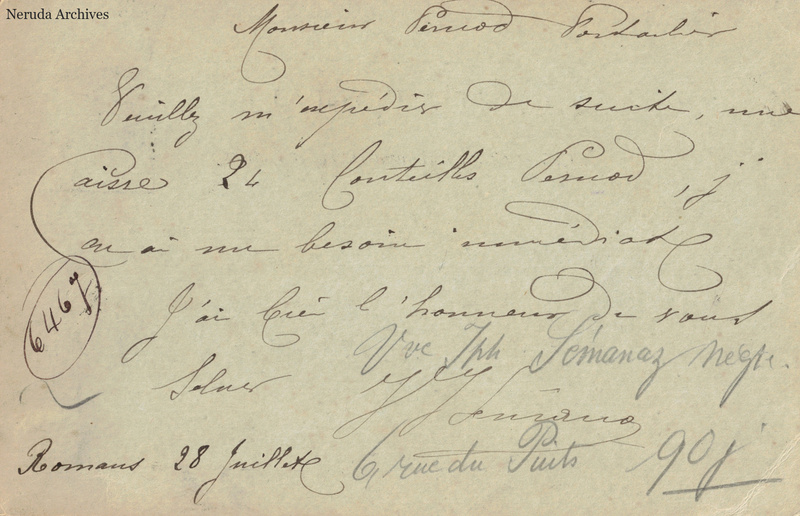 Neruda Archives
Monsieur Pernod Pontarlier
Veuillez m'expédier de suite, une
Caisse 24 Bouteilles Pernod, j
en ai un besoin immédiat
6467
J'ai bien l'honneur de vous
Vve Jph Sémanaz négt.
Saluer J Sémanaz
Romans 28 Juillet
6 rue du Puits 90 j